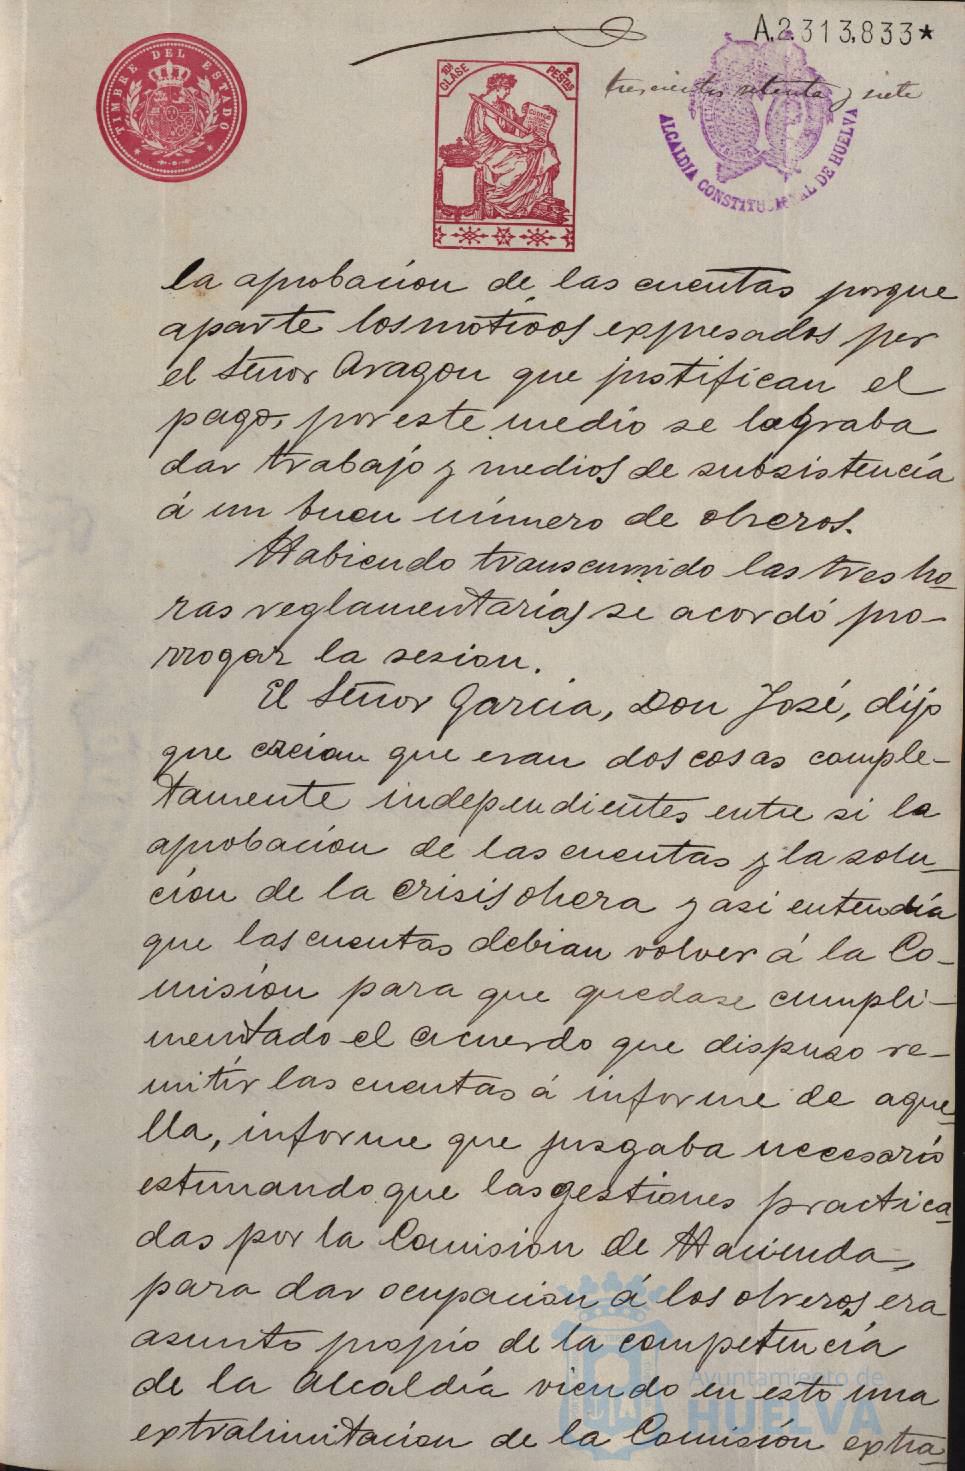 A.2.313.833★
TIMBRE DEL ESTADO
10ª CLASE
2 PESETAS
trescientos setenta y siete
ALCALDIA CONSTITUCIONAL DE HUELVA
la aprobacion de las cuentas porque
aparte los motivos expresados por
el Señor Aragon que justifican el
pago, por este medio se lograba
dar trabajo y medios de subsistencia
á un buen número de obreros.
Habiendo transcurrido las tres ho-
ras reglamentarias se acordó pro-
rrogar la sesion.
El Señor Garcia, Don José, dijo
que creian que eran dos cosas comple-
tamente independientes entre si la
aprobacion de las cuentas y la solu-
cion de la crisis obrera y asi entendía
que las cuentas debian volver á la Co-
misión para que quedase cumpli-
mentado el acuerdo que dispuso re-
mitir las cuentas á informe de aque-
lla, informe que jusgaba necesario
estimando que las gestiones practica-
das por la Comision de Hacienda,
para dar ocupacion á los obreros era
asunto propio de la competencia
de la Alcaldía viendo en esto una
extralimitacion de la Comisión extra-
Ayuntamiento de
HUELVA